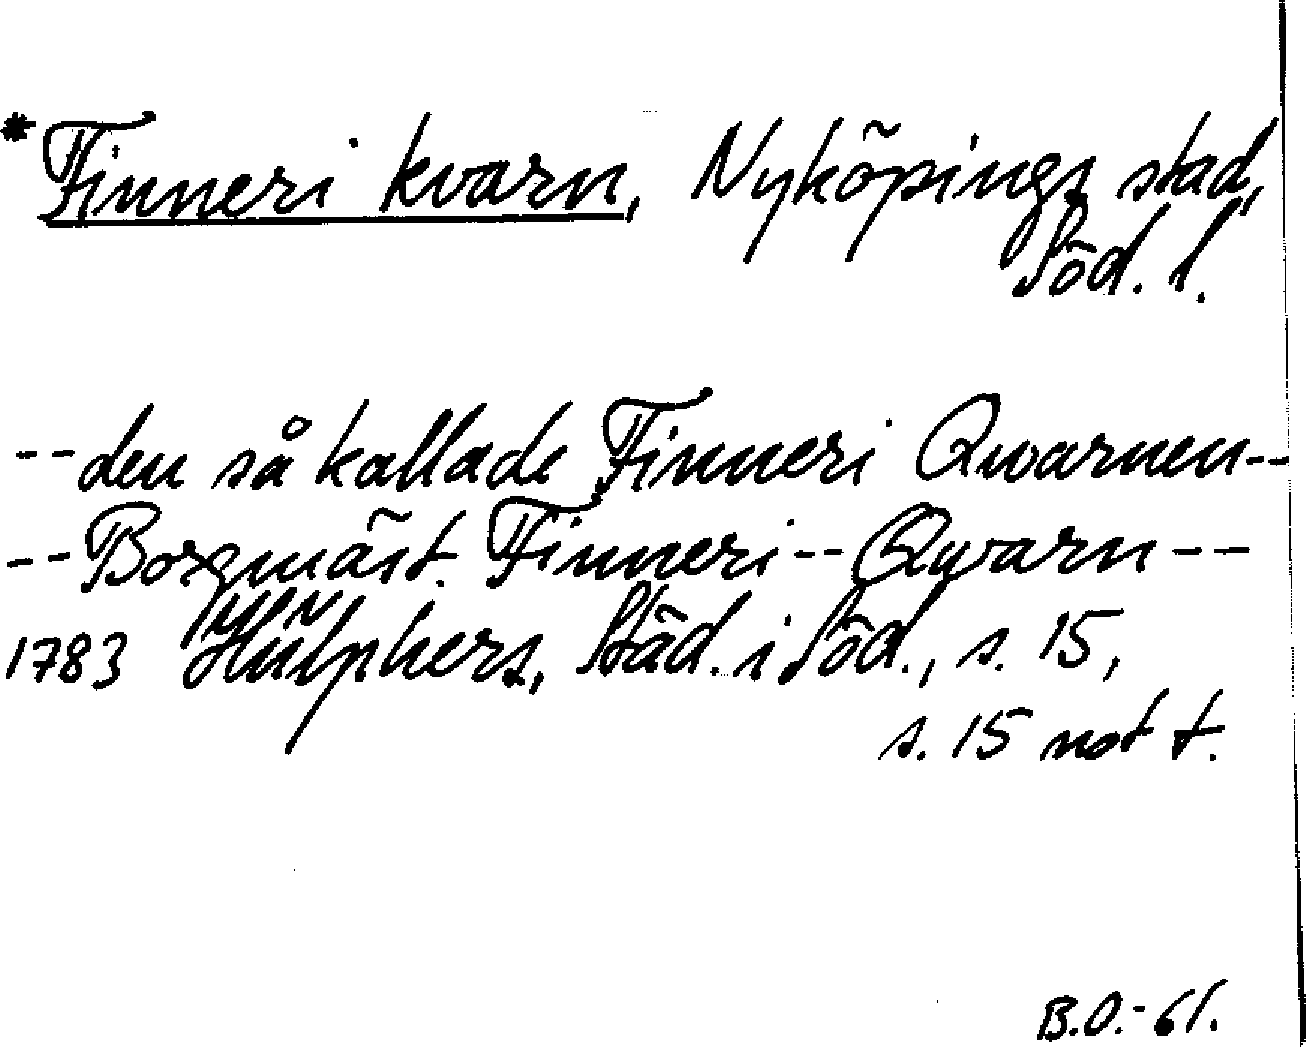 * Finneri kvarn, Nyköpings stad,
Söd. l.
-- den så kallade Finneri Qwarnen --
-- Borgmäst. Finneri -- Qwarn --
1783 Hülphers, Städ. i Söd., s. 15,
s. 15 not t.
B.O.-61.